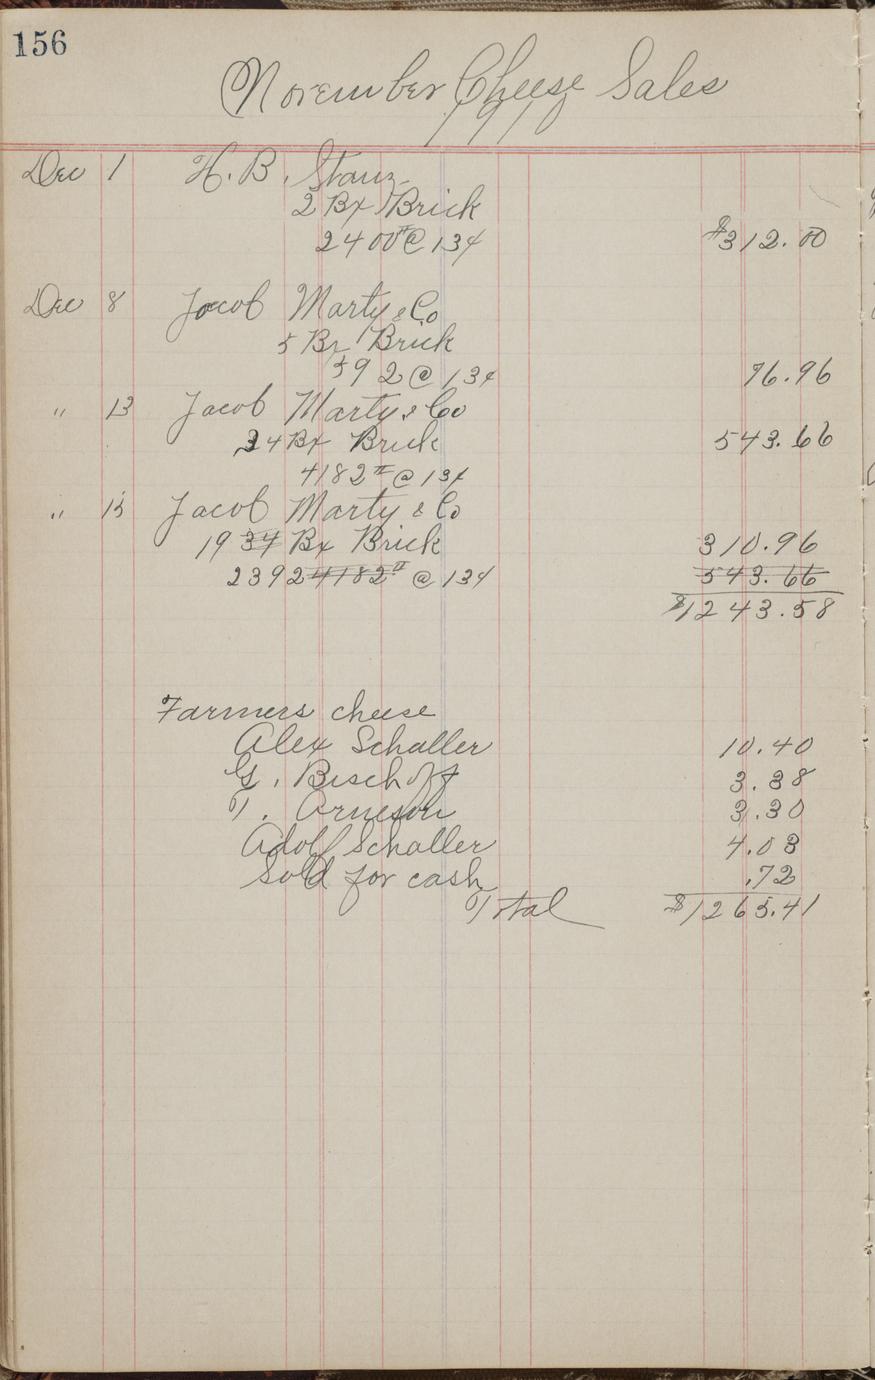 156
November Cheese Sales
Dec 1 H. B. Stanz
2 Bx Brick
2400# @ 13¢ $312.00
Dec 8 Jacob Marty & Co
5 Bx Brick
592 @ 13¢ 76.96
" 13 Jacob Marty & Co
34 Bx Brick 543.66
4182# @ 13¢
" 15 Jacob Marty & Co
19 34 Bx Brick 310.96
2392 4182# @ 13¢ 543.66
$1243.58
Farmers cheese
Alex Schaller 10.40
G. Bischoff 3.38
T. Arneson 3.30
Adolf Schaller 4.03
Sold for cash .72
Total $1265.41